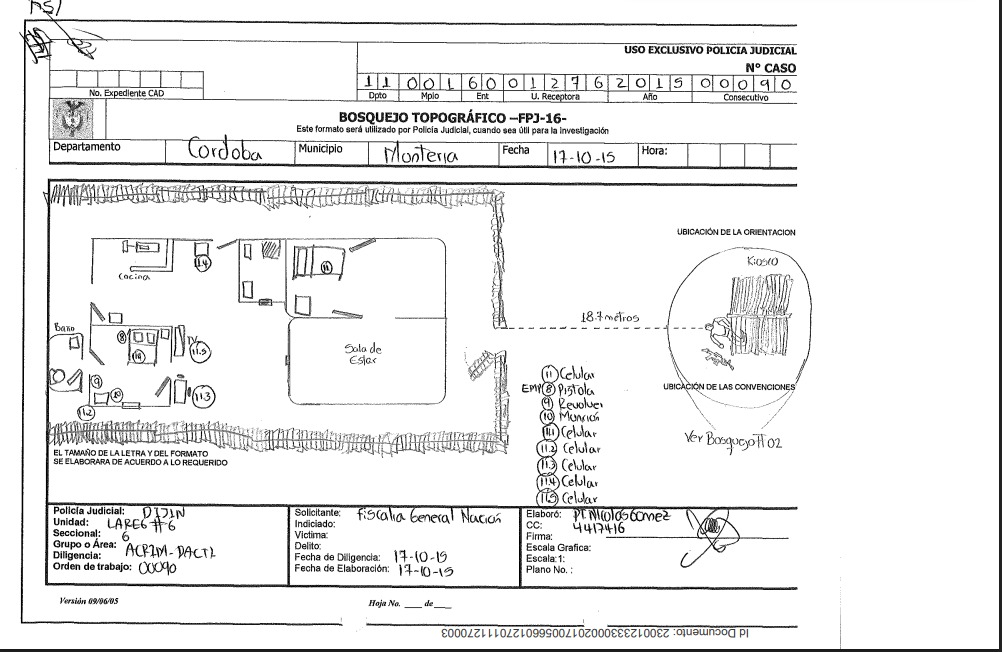 USO EXCLUSIVO POLICIA JUDICIAL
N° CASO
1 1 0 0 1 6 0 0 1 2 7 6 2 0 1 5 0 0 0 9 0
No. Expediente CAD
Dpto Mpio Ent U. Receptora Año Consecutivo
BOSQUEJO TOPOGRÁFICO –FPJ-16-
Este formato será utilizado por Policía Judicial, cuando sea útil para la Investigación
Departamento Cordoba Municipio Monteria Fecha 17-10-15 Hora:
UBICACIÓN DE LA ORIENTACION
Kiosco
11.4
11
Cocina
18.7 metros
Baño
8
TV
11.5
Sala de
Estar
11 Celular
EMP 8 Pistola
9 Revolver
10 Munición
11.1 Celular
11.2 Celular
11.3 Celular
11.4 Celular
11.5 Celular
9
10
11.3
11.2
UBICACIÓN DE LAS CONVENCIONES
Ver Bosquejo # 02
EL TAMAÑO DE LA LETRA Y DEL FORMATO
SE ELABORARA DE ACUERDO A LO REQUERIDO
Policía Judicial: DIJIN
Unidad: LABE6 #6
Seccional: 6
Grupo o Área: ACRIM-DACTI
Diligencia:
Orden de trabajo: 00090
Solicitante: Fiscalia General Nación
Indiciado:
Victima:
Delito:
Fecha de Diligencia: 17-10-15
Fecha de Elaboración: 17-10-15
Elaboró: PT Nicolas Gomez
CC: 4417416
Firma:
Escala Grafica:
Escala:1:
Plano No. :
Versión 09/06/05
Hoja No. ___ de ___
Id Documento: 23001233300020170056601270111270003